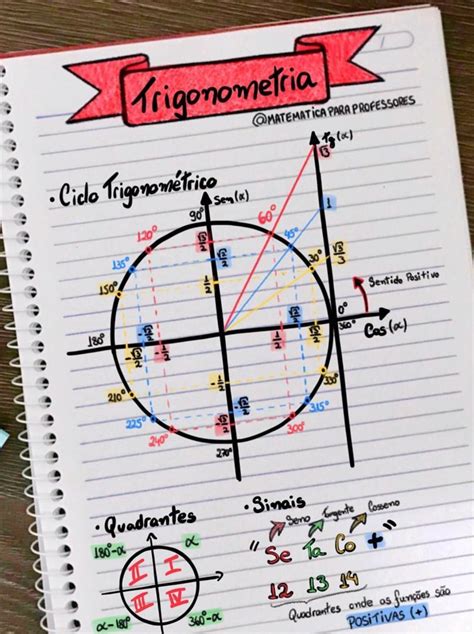 Trigonometria
@MATEMATICAPARAPROFESSORES
• Ciclo Trigonométrico
Sen(α)
Tg(α)
√3
90°
120°
60°
1
135°
45°
√3/2
√2/2
150°
30°
√3/3
1/2
Sentido Positivo
180°
-√3/2
-√2/2
-1/2
1/2
√2/2
√3/2
0°
360°
Cos(α)
210°
-1/2
330°
225°
-√2/2
315°
240°
-√3/2
300°
270°
• Quadrantes
180°-α
α
II
I
III
IV
α-180°
360°-α
• Sinais
Seno
Tangente
Cosseno
"Se Ta Co +"
12 13 14
Quadrantes onde as funções são
POSITIVAS (+)